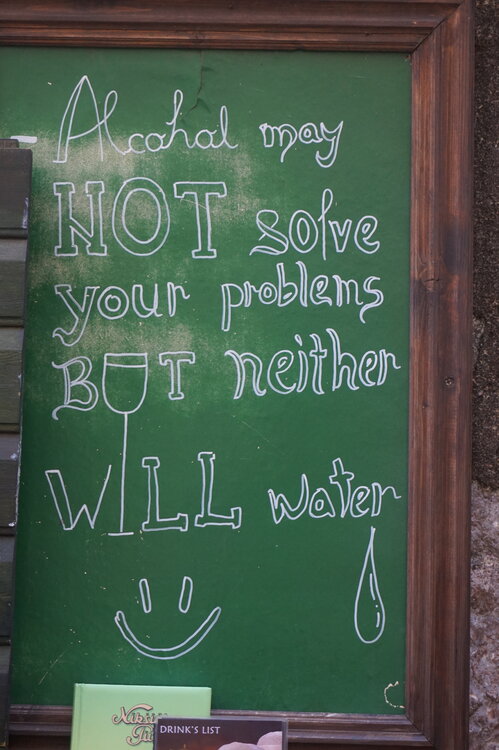 Alcohol may
NOT solve
your problems
BUT neither
WILL water
DRINK'S LIST